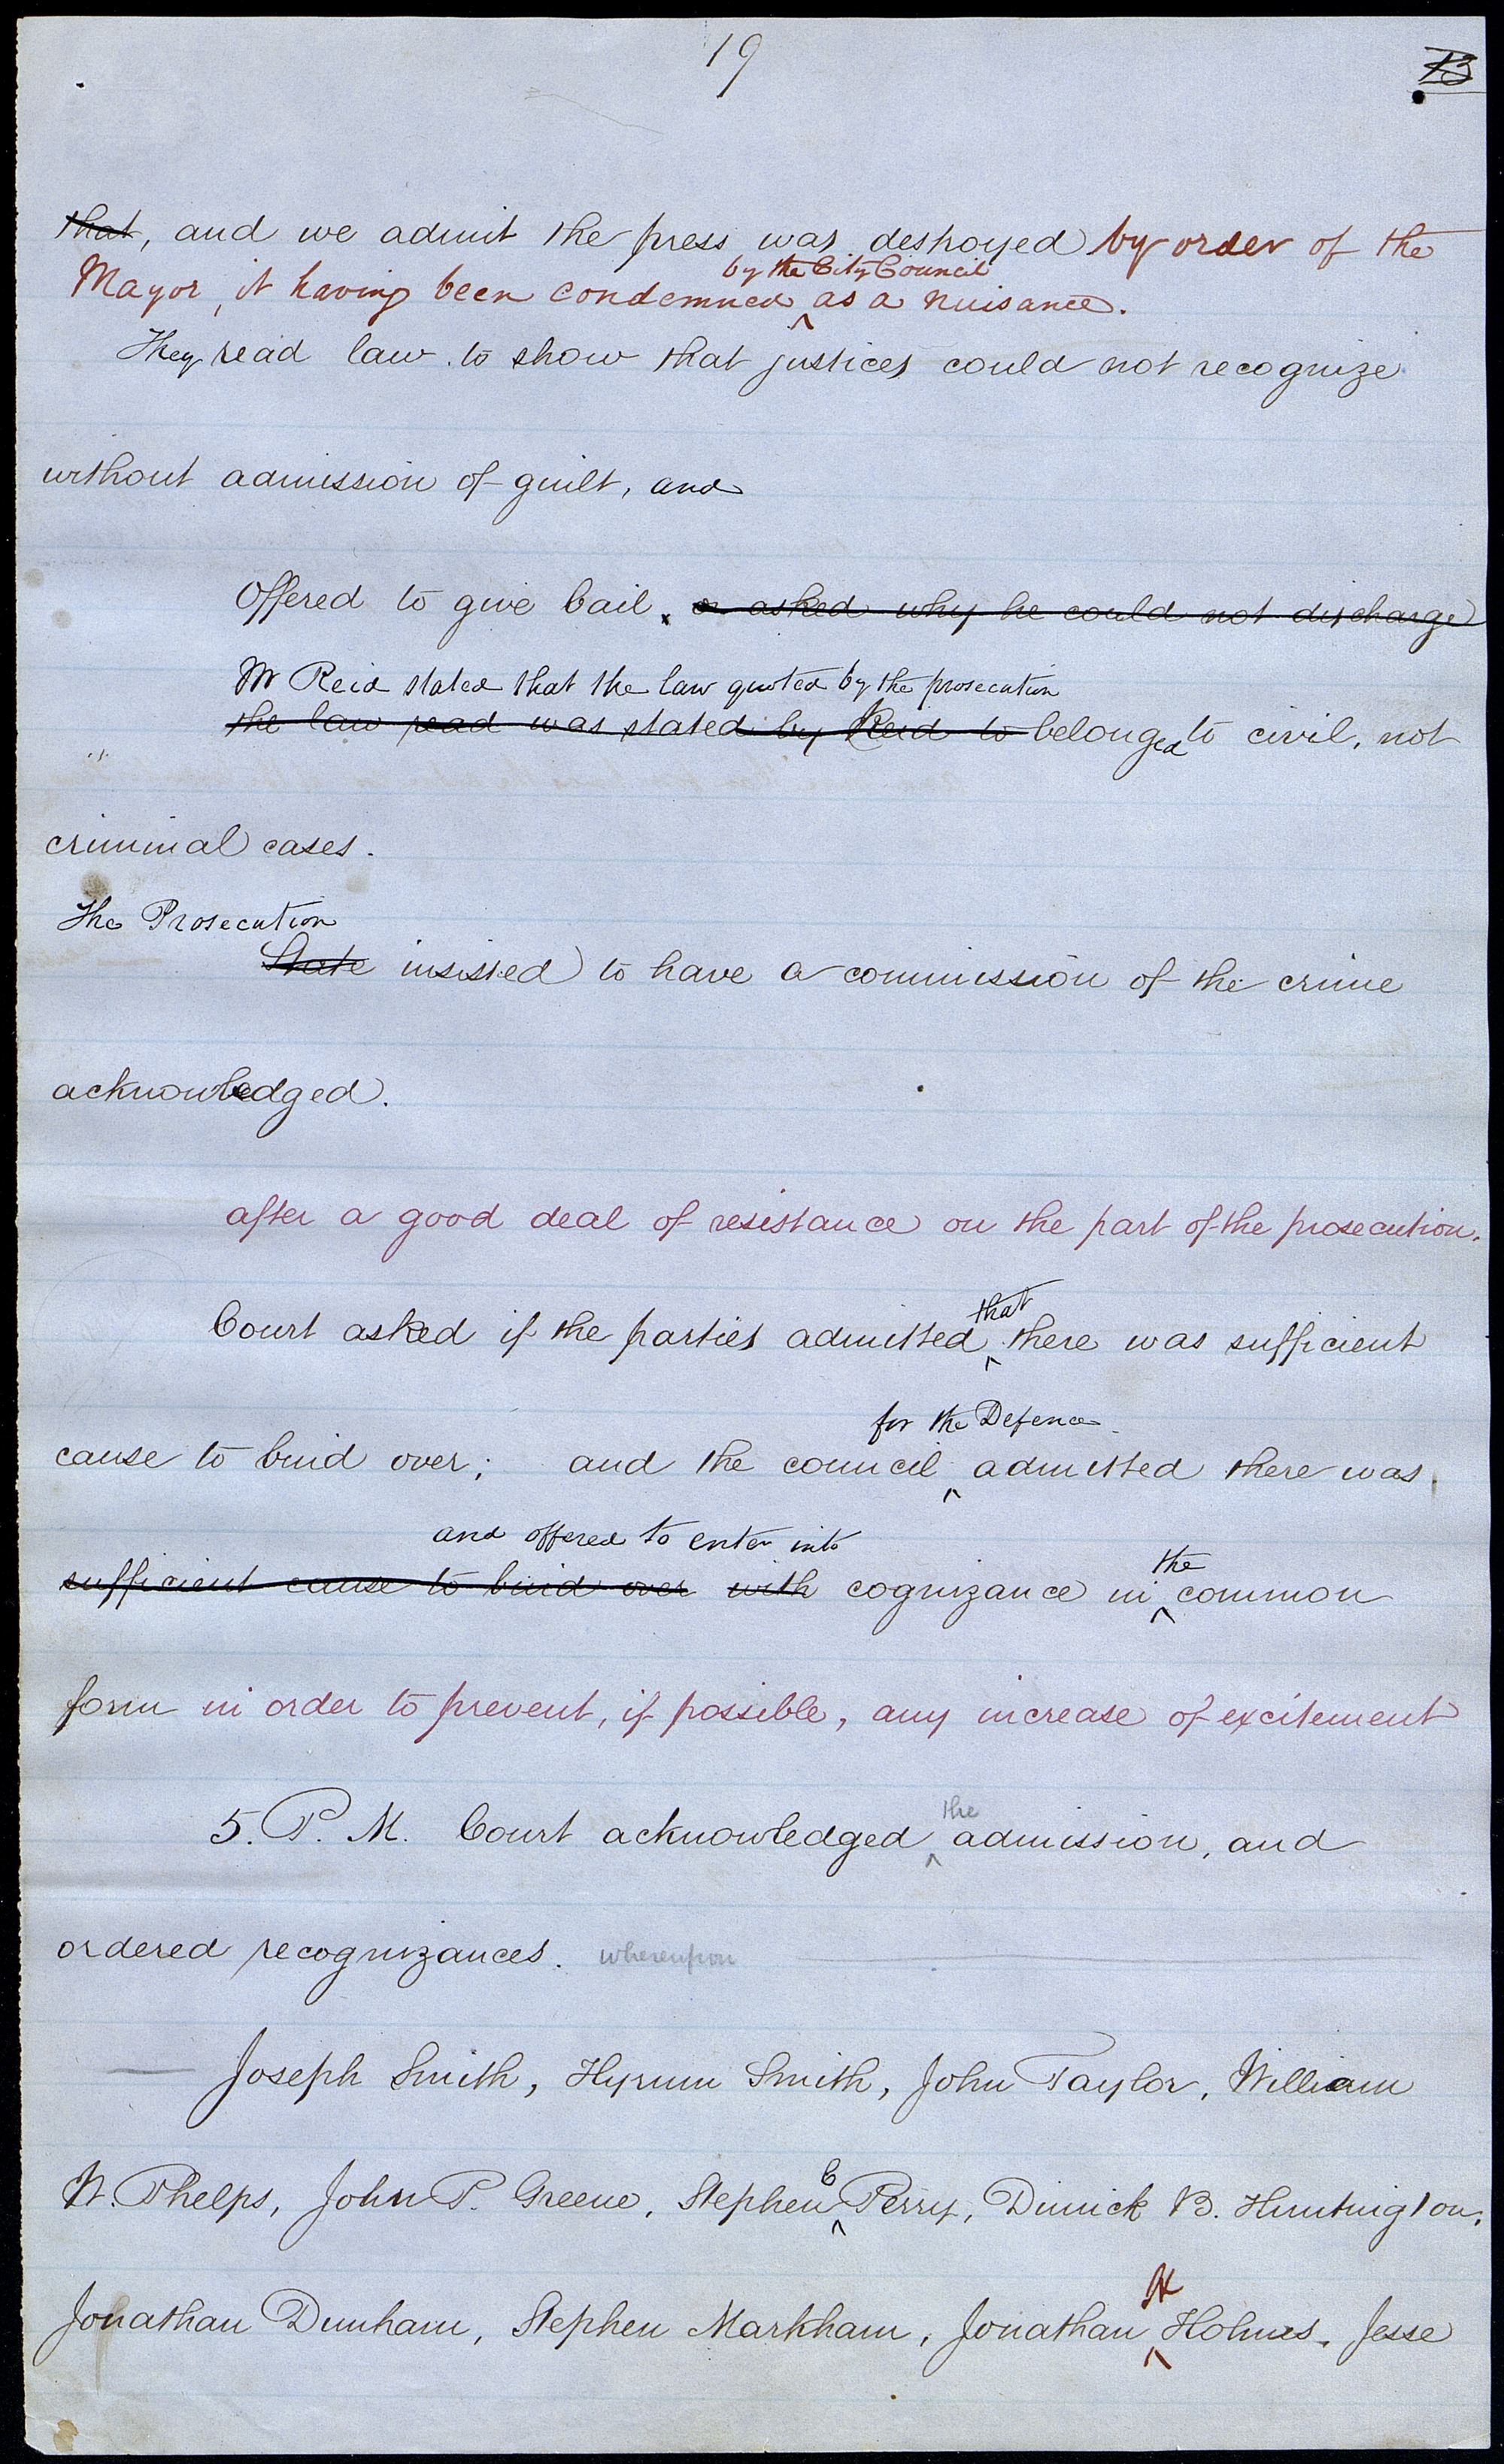 19
B
that, and we admit the press was destroyed by order of the
by the City Council
Mayor, it having been condemned ^ as a nuisance.
They read law to show that justices could not recognize
without admission of guilt, and
Offered to give bail. or asked why he could not discharge
Mr Reid stated that the law quoted by the prosecution
the law read was stated by Reid to belonged to civil, not
criminal cases.
The Prosecution
State insisted to have a commission of the crime
acknowledged.
after a good deal of resistance on the part of the prosecution.
that
Court asked if the parties admitted ^ there was sufficient
for the Defence
cause to bind over; and the council ^ admitted there was
and offered to enter into
the
sufficient cause to bind over with cognizance in ^ common
form in order to prevent, if possible, any increase of excitement
the
5. P. M. Court acknowledged ^ admission, and
ordered recognizances. whereupon
Joseph Smith, Hyrum Smith, John Taylor, William
C
W. Phelps, John P. Greene, Stephen ^ Perry, Dimick B. Huntington,
H
Jonathan Dunham, Stephen Markham, Jonathan ^ Holmes, Jesse